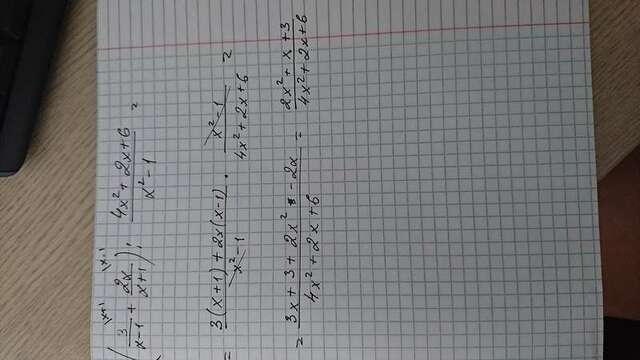 ( 3/(x-1) \x+1 + 2x/(x+1) \x-1 ) : (4x²+2x+6)/(x²-1) =
= (3(x+1)+2x(x-1))/(x²-1) · (x²-1)/(4x²+2x+6) =
= (3x+3+2x²-2x)/(4x²+2x+6) = (2x²+x+3)/(4x²+2x+6)